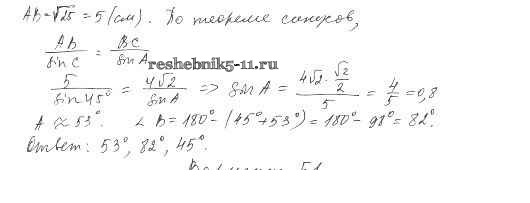 AB = √25 = 5 (см). По теореме синусов,
AB / sin C = BC / sin A
reshebnik5-11.ru
5 / sin 45° = 4√2 / sin A => sin A = (4√2 · √2/2) / 5 = 4/5 = 0,8
A ≈ 53°. ∠B = 180° - (45° + 53°) = 180° - 98° = 82°.
Ответ: 53°, 82°, 45°.